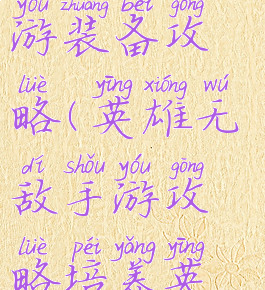 yóu zhuāng bèi gōng
游装备攻
lüè yīng xióng wú
略(英雄无
dí shǒu yóu gōng
敌手游攻
lüè péi yǎng yīng
略培养英